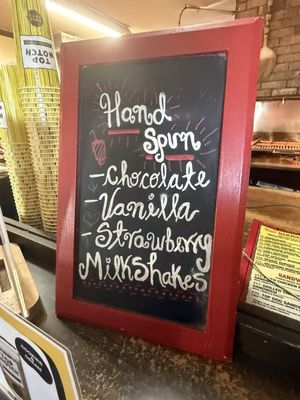 TOP
NOTCH
Hand
Spun
-Chocolate
-Vanilla
-Strawberry
Milkshakes